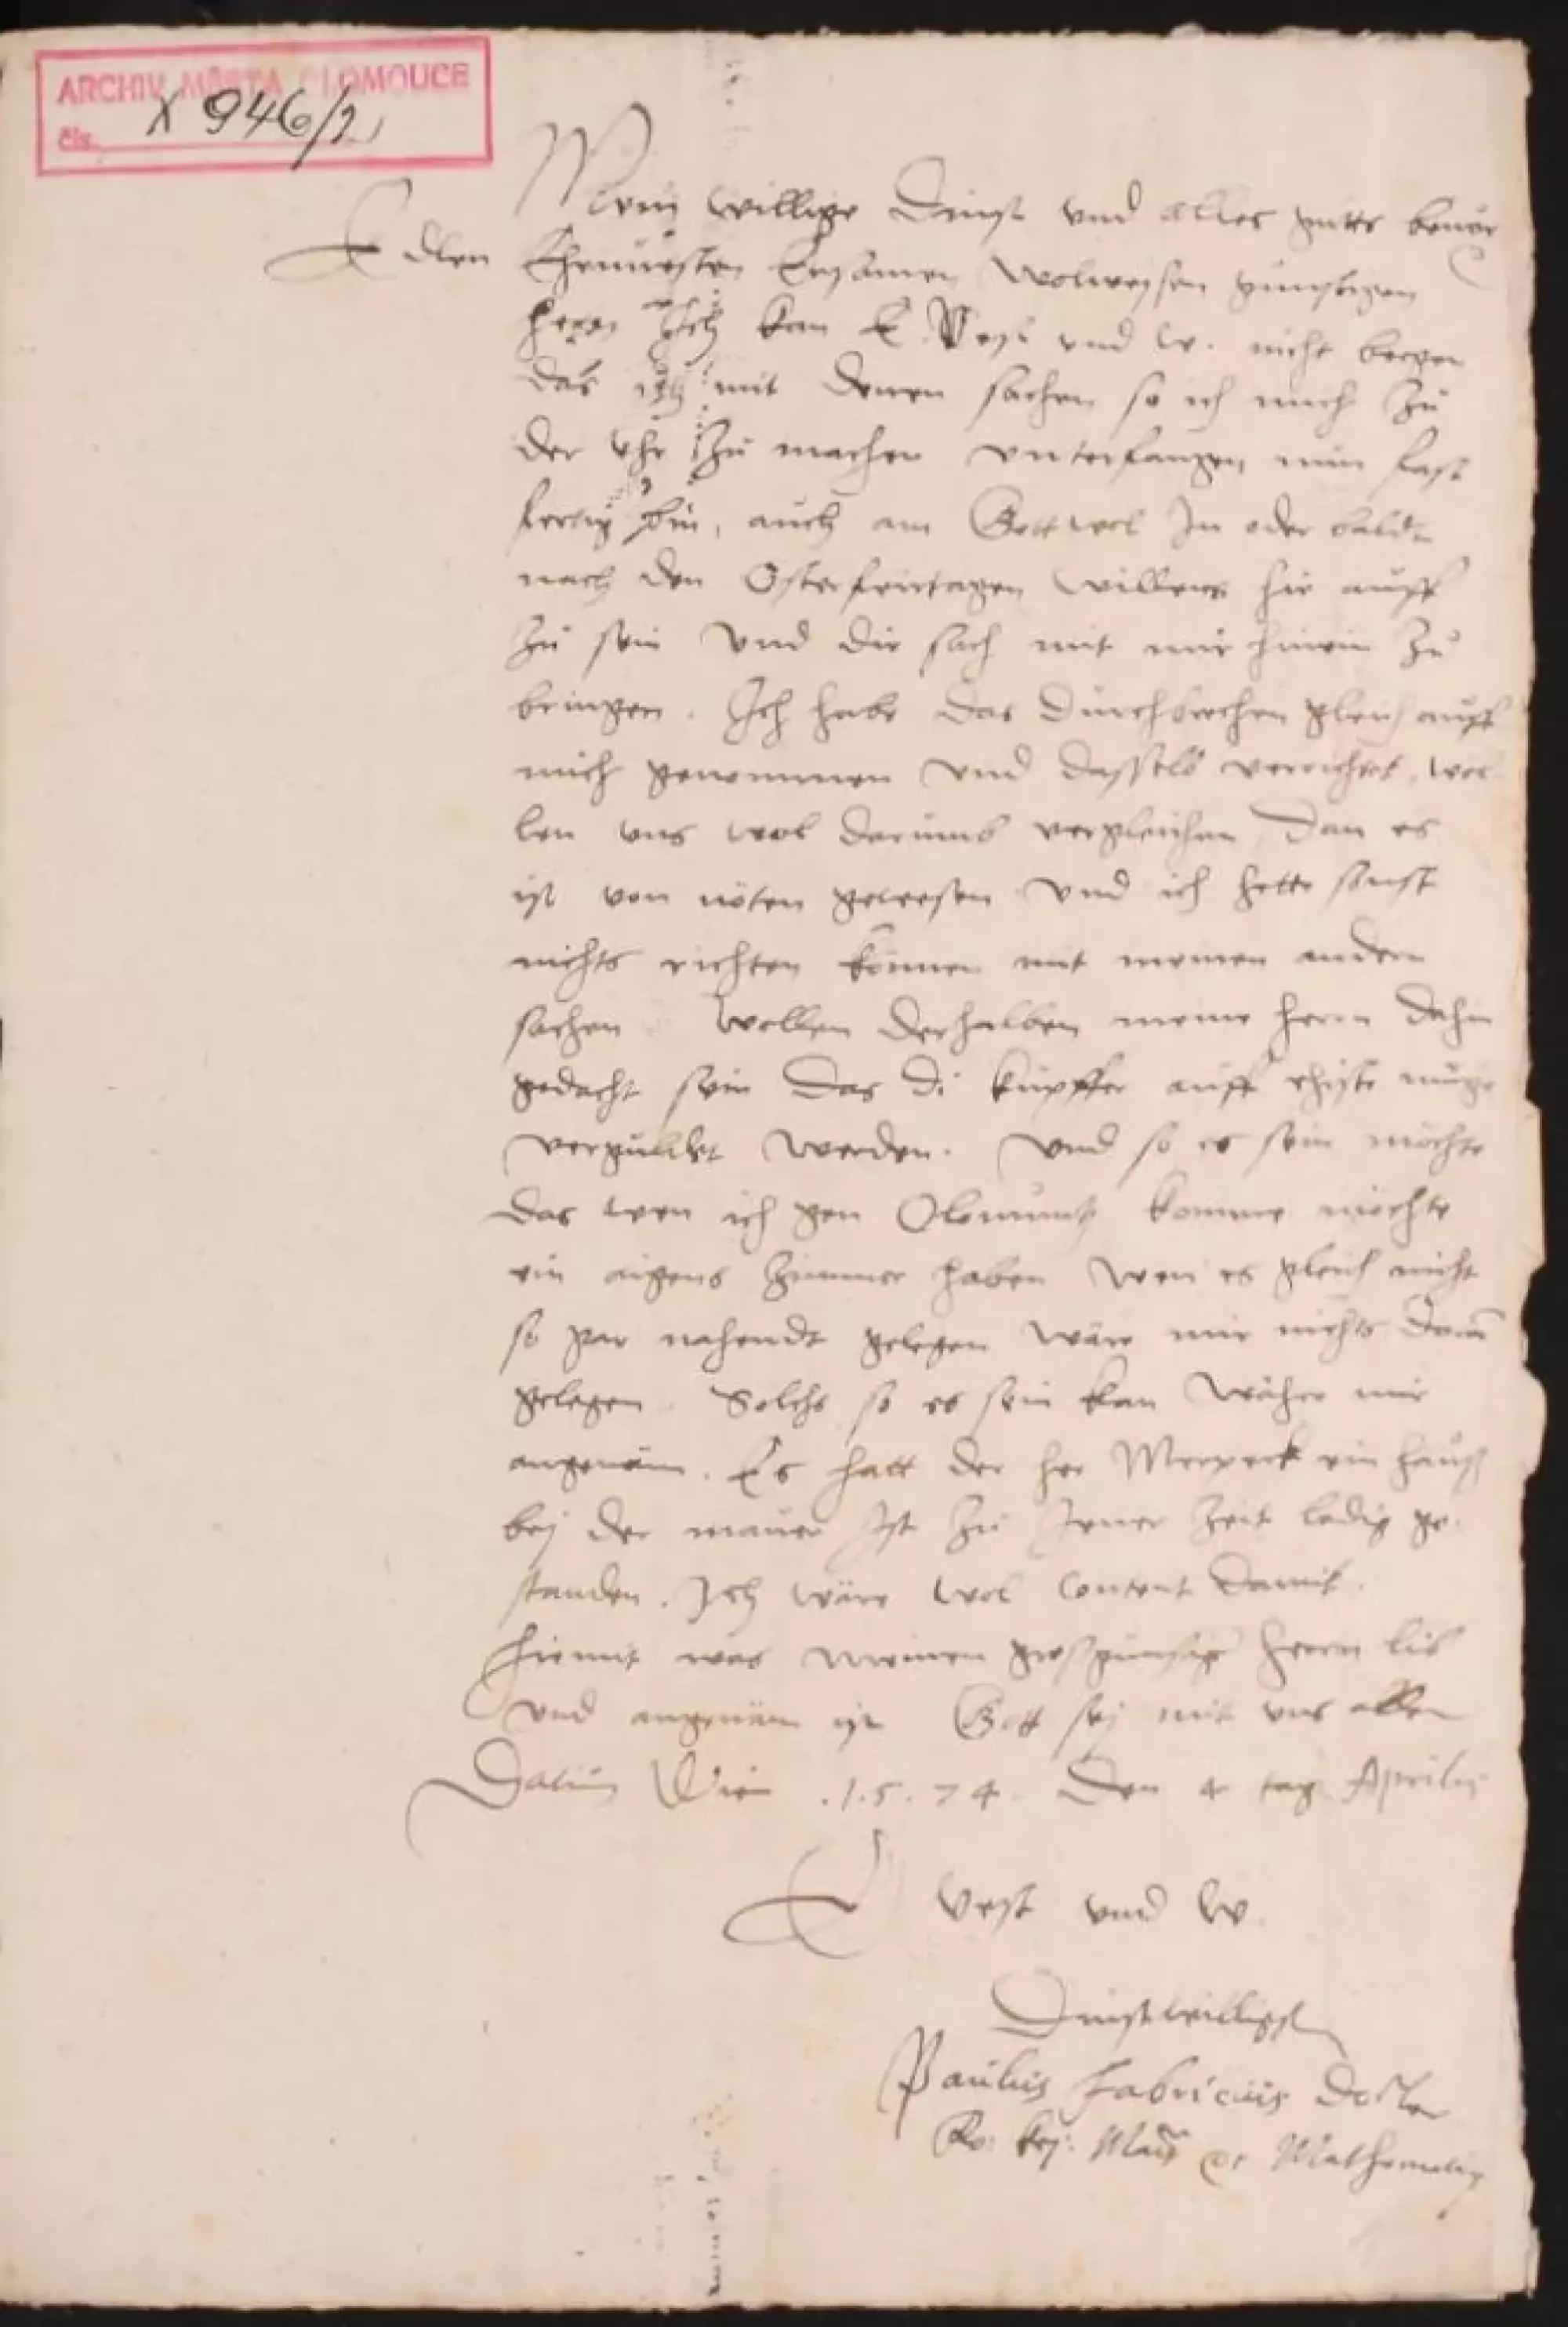 ARCHIV MĚSTA OLOMOUCE
čís. X 946/2
Mein willige Dinst und alles guttes beuor
Edlen Ehrnuesten Ersamen Wolweysen gunstigen
herrn Ich kan E. Vest und W. nicht bergen
das ich mit denen sachen so ich mich zu
der Uhr zu machen unterfangen nun fast
fertig bin, auch am Gott wol In oder baldt
nach den Osterfeirtagen willens hie auff
zu sein und die sach mit mir hinein zu
bringen. Ich habe das durchbrechen gleich auff
mich genommen und dasselb verrichtet, wol-
len uns wol darumb vergleichen, Dan es
ist von nöten gewesen und ich hette sonst
nichts richten können mit meinen andern
sachen Wollen derhalben meine herrn dahin
gedacht sein das di kupffer auff ehiste muge
vergulldt werden. Und so es sein möchte
das wen ich gen Olomuntz komme möchte
ein aigens Zimmer haben wen es gleich nicht
so gar nahendt gelegen wäre mir nichts daran
gelegen. Solchs so es sein kan wäher mir
angenäm. Es hatt der her Merpeck ein hauss
bej der mauer Ist zu Jener Zeit ledig ge-
standen. Ich wäre wol content damit.
Hiemit was meinen grossgünstigen herrn lib
und angenäm ist Gott sej mit uns allen
Datum Wien .1.5.74. Den 4 tag Aprilis
E Vest und W.
Dinstwilligster
Paulus Fabricius Doctor
Ro: kej: Matt etc Mathematicus